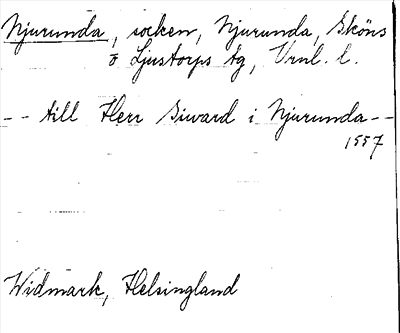 Njurunda, socken, Njurunda, Sköns
o Ljustorps tg, Vrnl. l.
-- till Herr Siward i Njurunda --
1557
Widmark, Helsingland